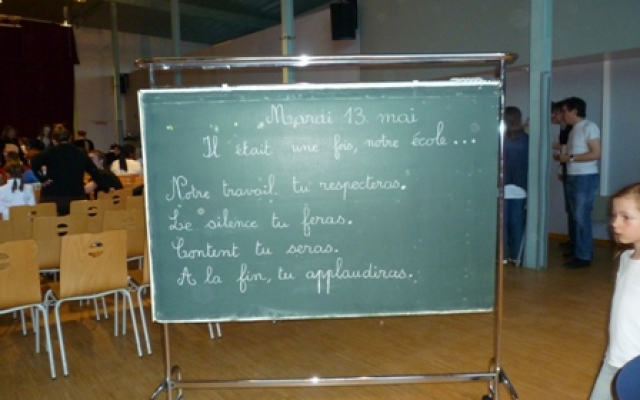 Mardi 13 mai
Il était une fois, notre école...
Notre travail tu respecteras.
Le silence tu feras.
Content tu seras.
A la fin, tu applaudiras.